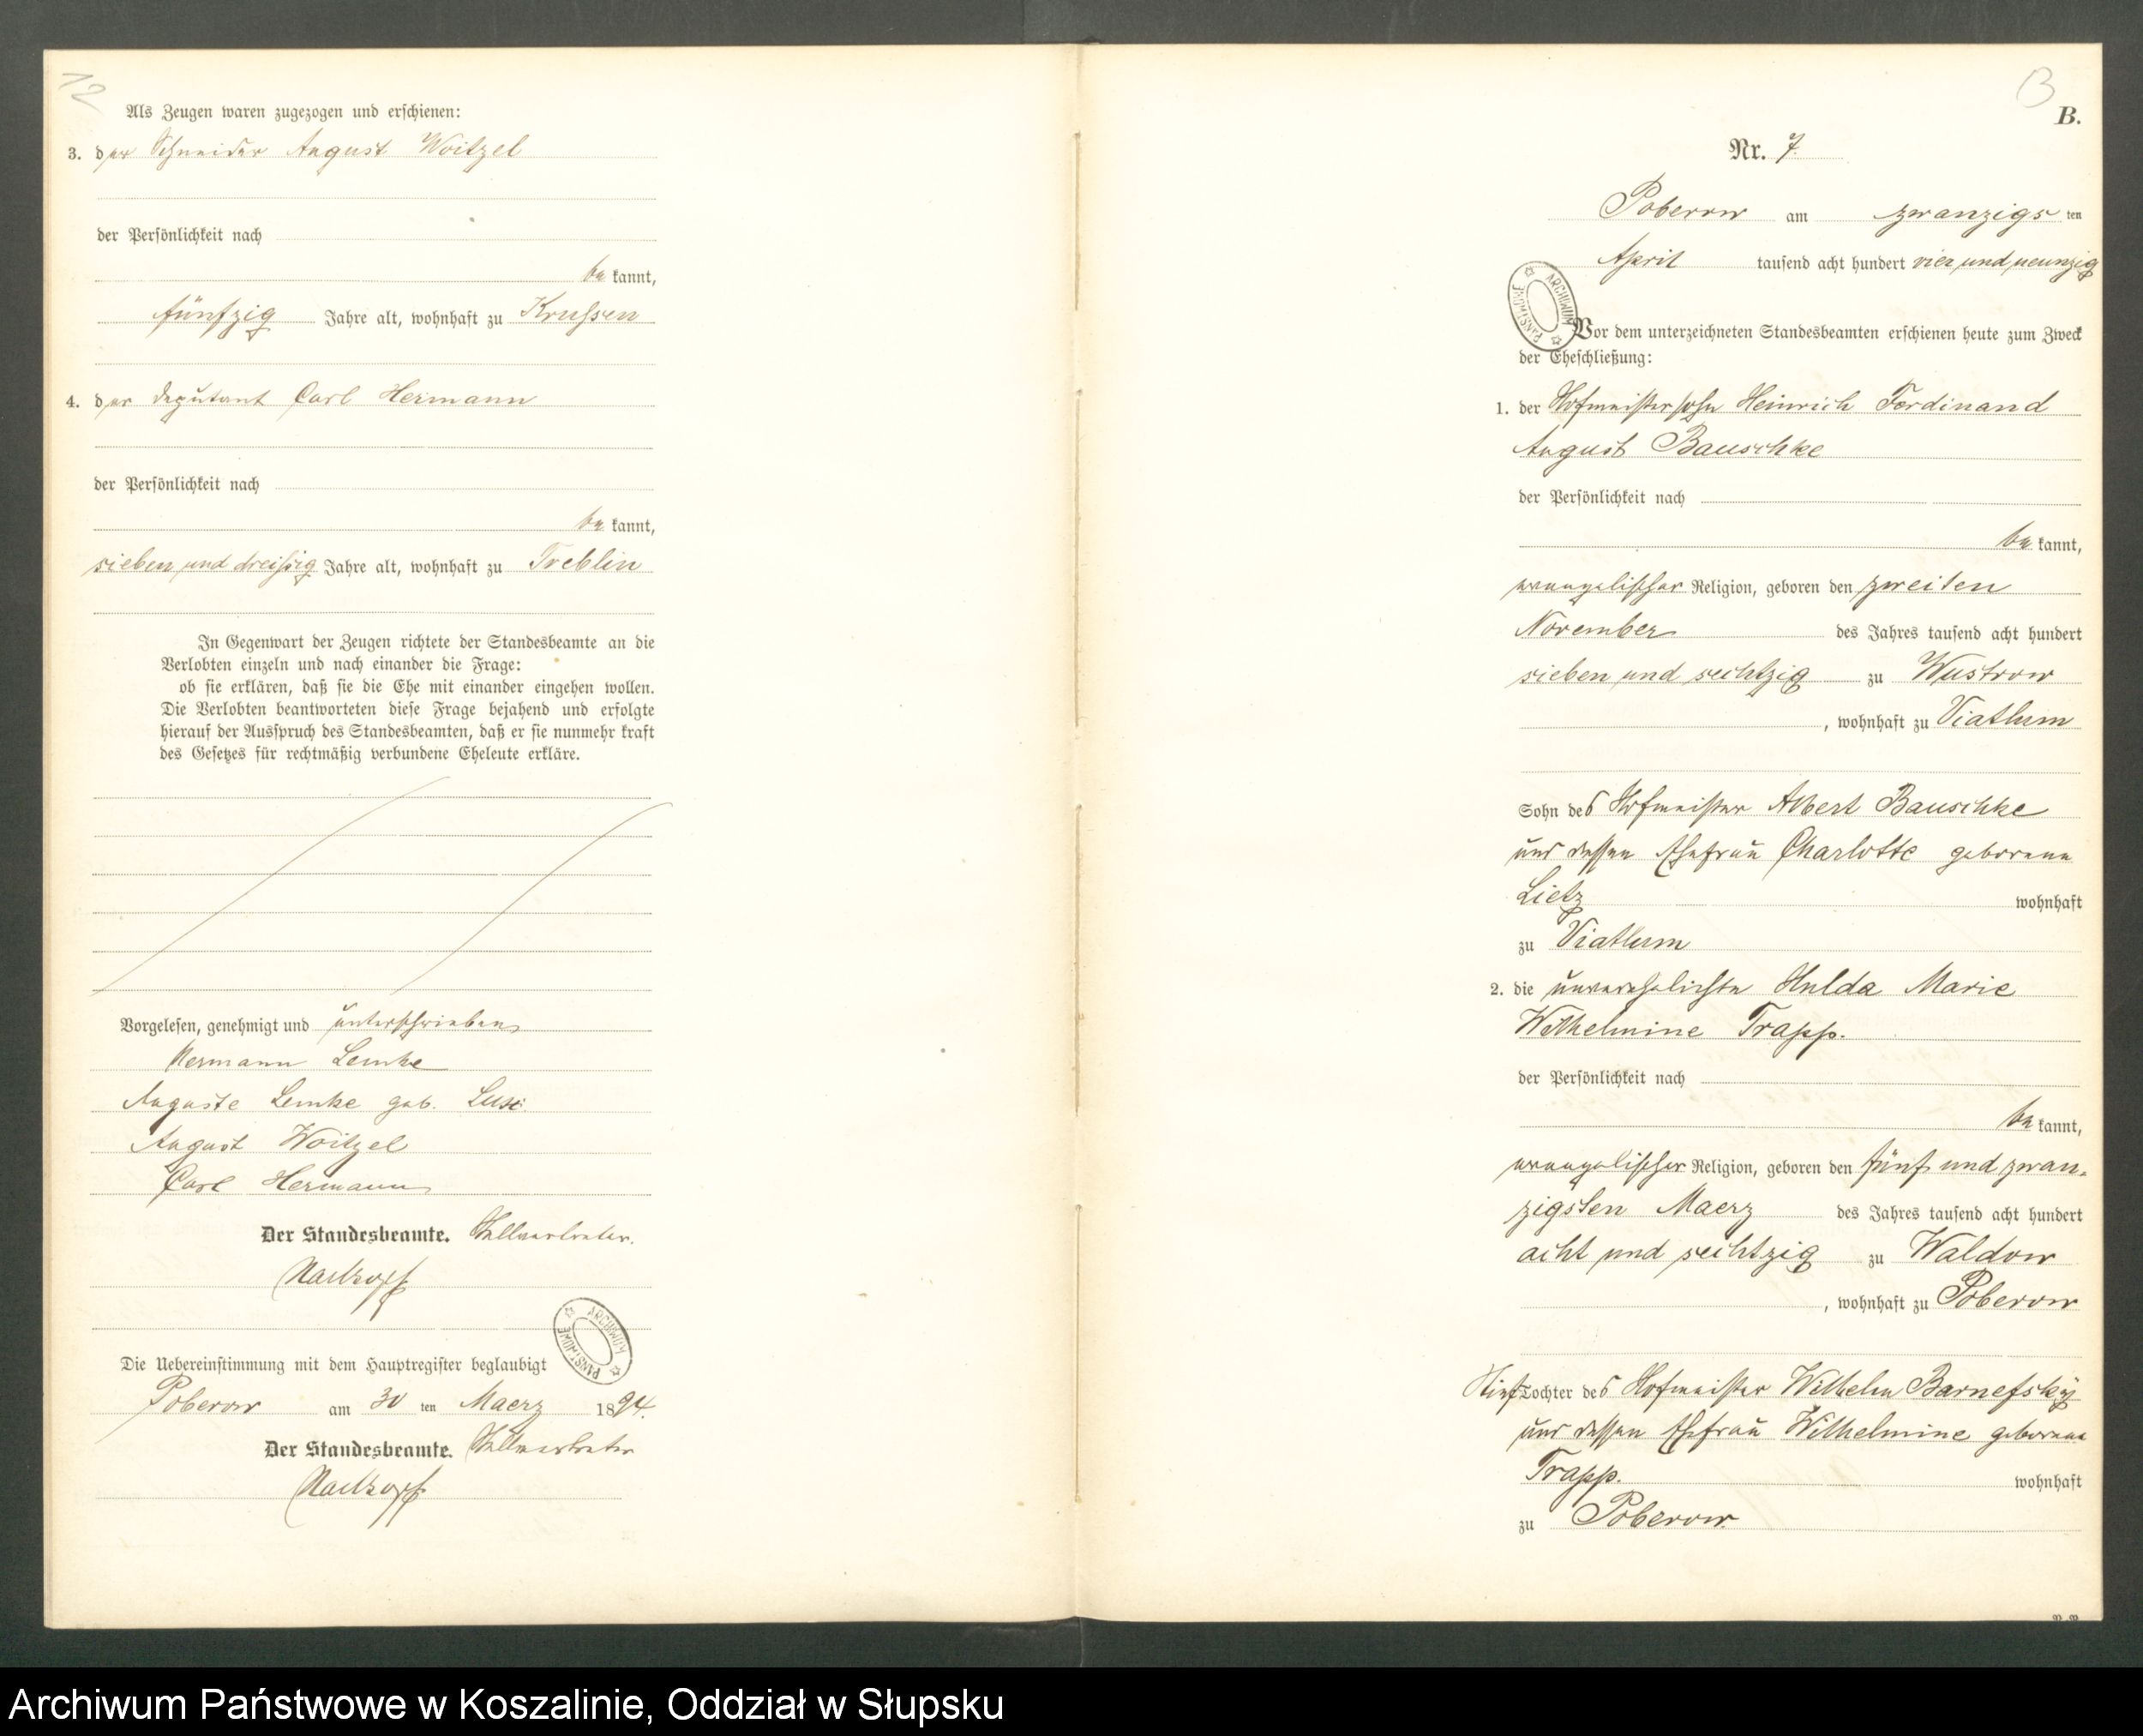 12
Als Zeugen waren zugezogen und erschienen:
3. der Schneider August Woitzel
der Persönlichkeit nach
be kannt,
fünfzig Jahre alt, wohnhaft zu Krussen
4. der Deputant Carl Hermann
der Persönlichkeit nach
be kannt,
sieben und dreißig Jahre alt, wohnhaft zu Treblin
In Gegenwart der Zeugen richtete der Standesbeamte an die
Verlobten einzeln und nach einander die Frage:
ob sie erklären, daß sie die Ehe mit einander eingehen wollen.
Die Verlobten beantworteten diese Frage bejahend und erfolgte
hierauf der Ausspruch des Standesbeamten, daß er sie nunmehr kraft
des Gesetzes für rechtmäßig verbundene Eheleute erkläre.
Vorgelesen, genehmigt und unterschrieben
Hermann Lemke
Auguste Lemke geb.
August Woitzel
Carl Hermann
Der Standesbeamte. Stellvertreter.
ARCHIWUM PAŃSTWOWE
Die Uebereinstimmung mit dem Hauptregister beglaubigt
Poberow am 30 ten Maerz 1894.
Der Standesbeamte. Stellvertreter
13
B.
Nr. 7.
Poberow am zwanzigs ten
April tausend acht hundert vier und neunzig
ARCHIWUM PAŃSTWOWE
Vor dem unterzeichneten Standesbeamten erschienen heute zum Zweck
der Eheschließung:
1. der Hofmeistersohn Heinrich Ferdinand
August Bauschke
der Persönlichkeit nach
be kannt,
evangelischer Religion, geboren den zweiten
November des Jahres tausend acht hundert
sieben und sechtzig zu Wustrow
, wohnhaft zu Viatlum
Sohn des Hofmeister Albert Bauschke
und dessen Ehefrau Charlotte geborene
Lietz wohnhaft
zu Viatlum
2. die unverehelichte Hulda Marie
Wilhelmine Trapp.
der Persönlichkeit nach
be kannt,
evangelischer Religion, geboren den fünf und zwan-
zigsten Maerz des Jahres tausend acht hundert
acht und sechtzig zu Waldow
, wohnhaft zu Poberow
Stief Tochter des Hofmeister Wilhelm Barnefsky
und dessen Ehefrau Wilhelmine geborene
Trapp. wohnhaft
zu Poberow.
Archiwum Państwowe w Koszalinie, Oddział w Słupsku